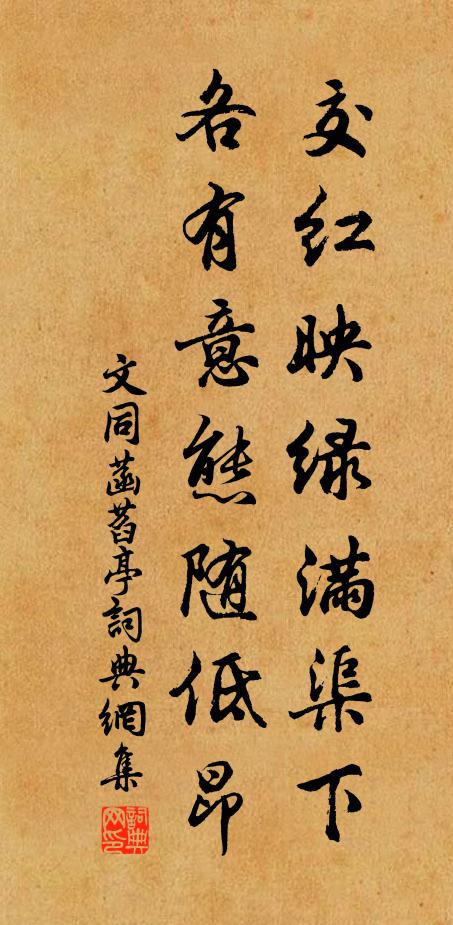 交红映绿满渠下
各有意態随低昂
文同菡萏亭詞典網集
詞典网印